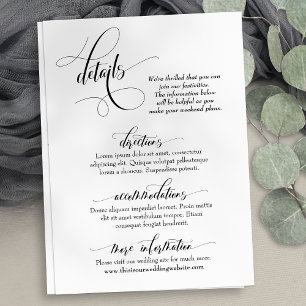 details
We're thrilled that you can
join our festivities.
The information below
will be helpful as you
make your weekend plans.
directions
Lorem ipsum dolor sit amet, consectetur
adipiscing elit. Quisque volutpat pellentesque
laoreet in consectetur.
accommodations
Donec aliquam imperdiet lorem. Pretium mattis
sit amet vestibulum tempor. Etiam commodo
eleifend dictum.
more information
Please visit our wedding site for much more.
www.thisisourweddingwebsite.com